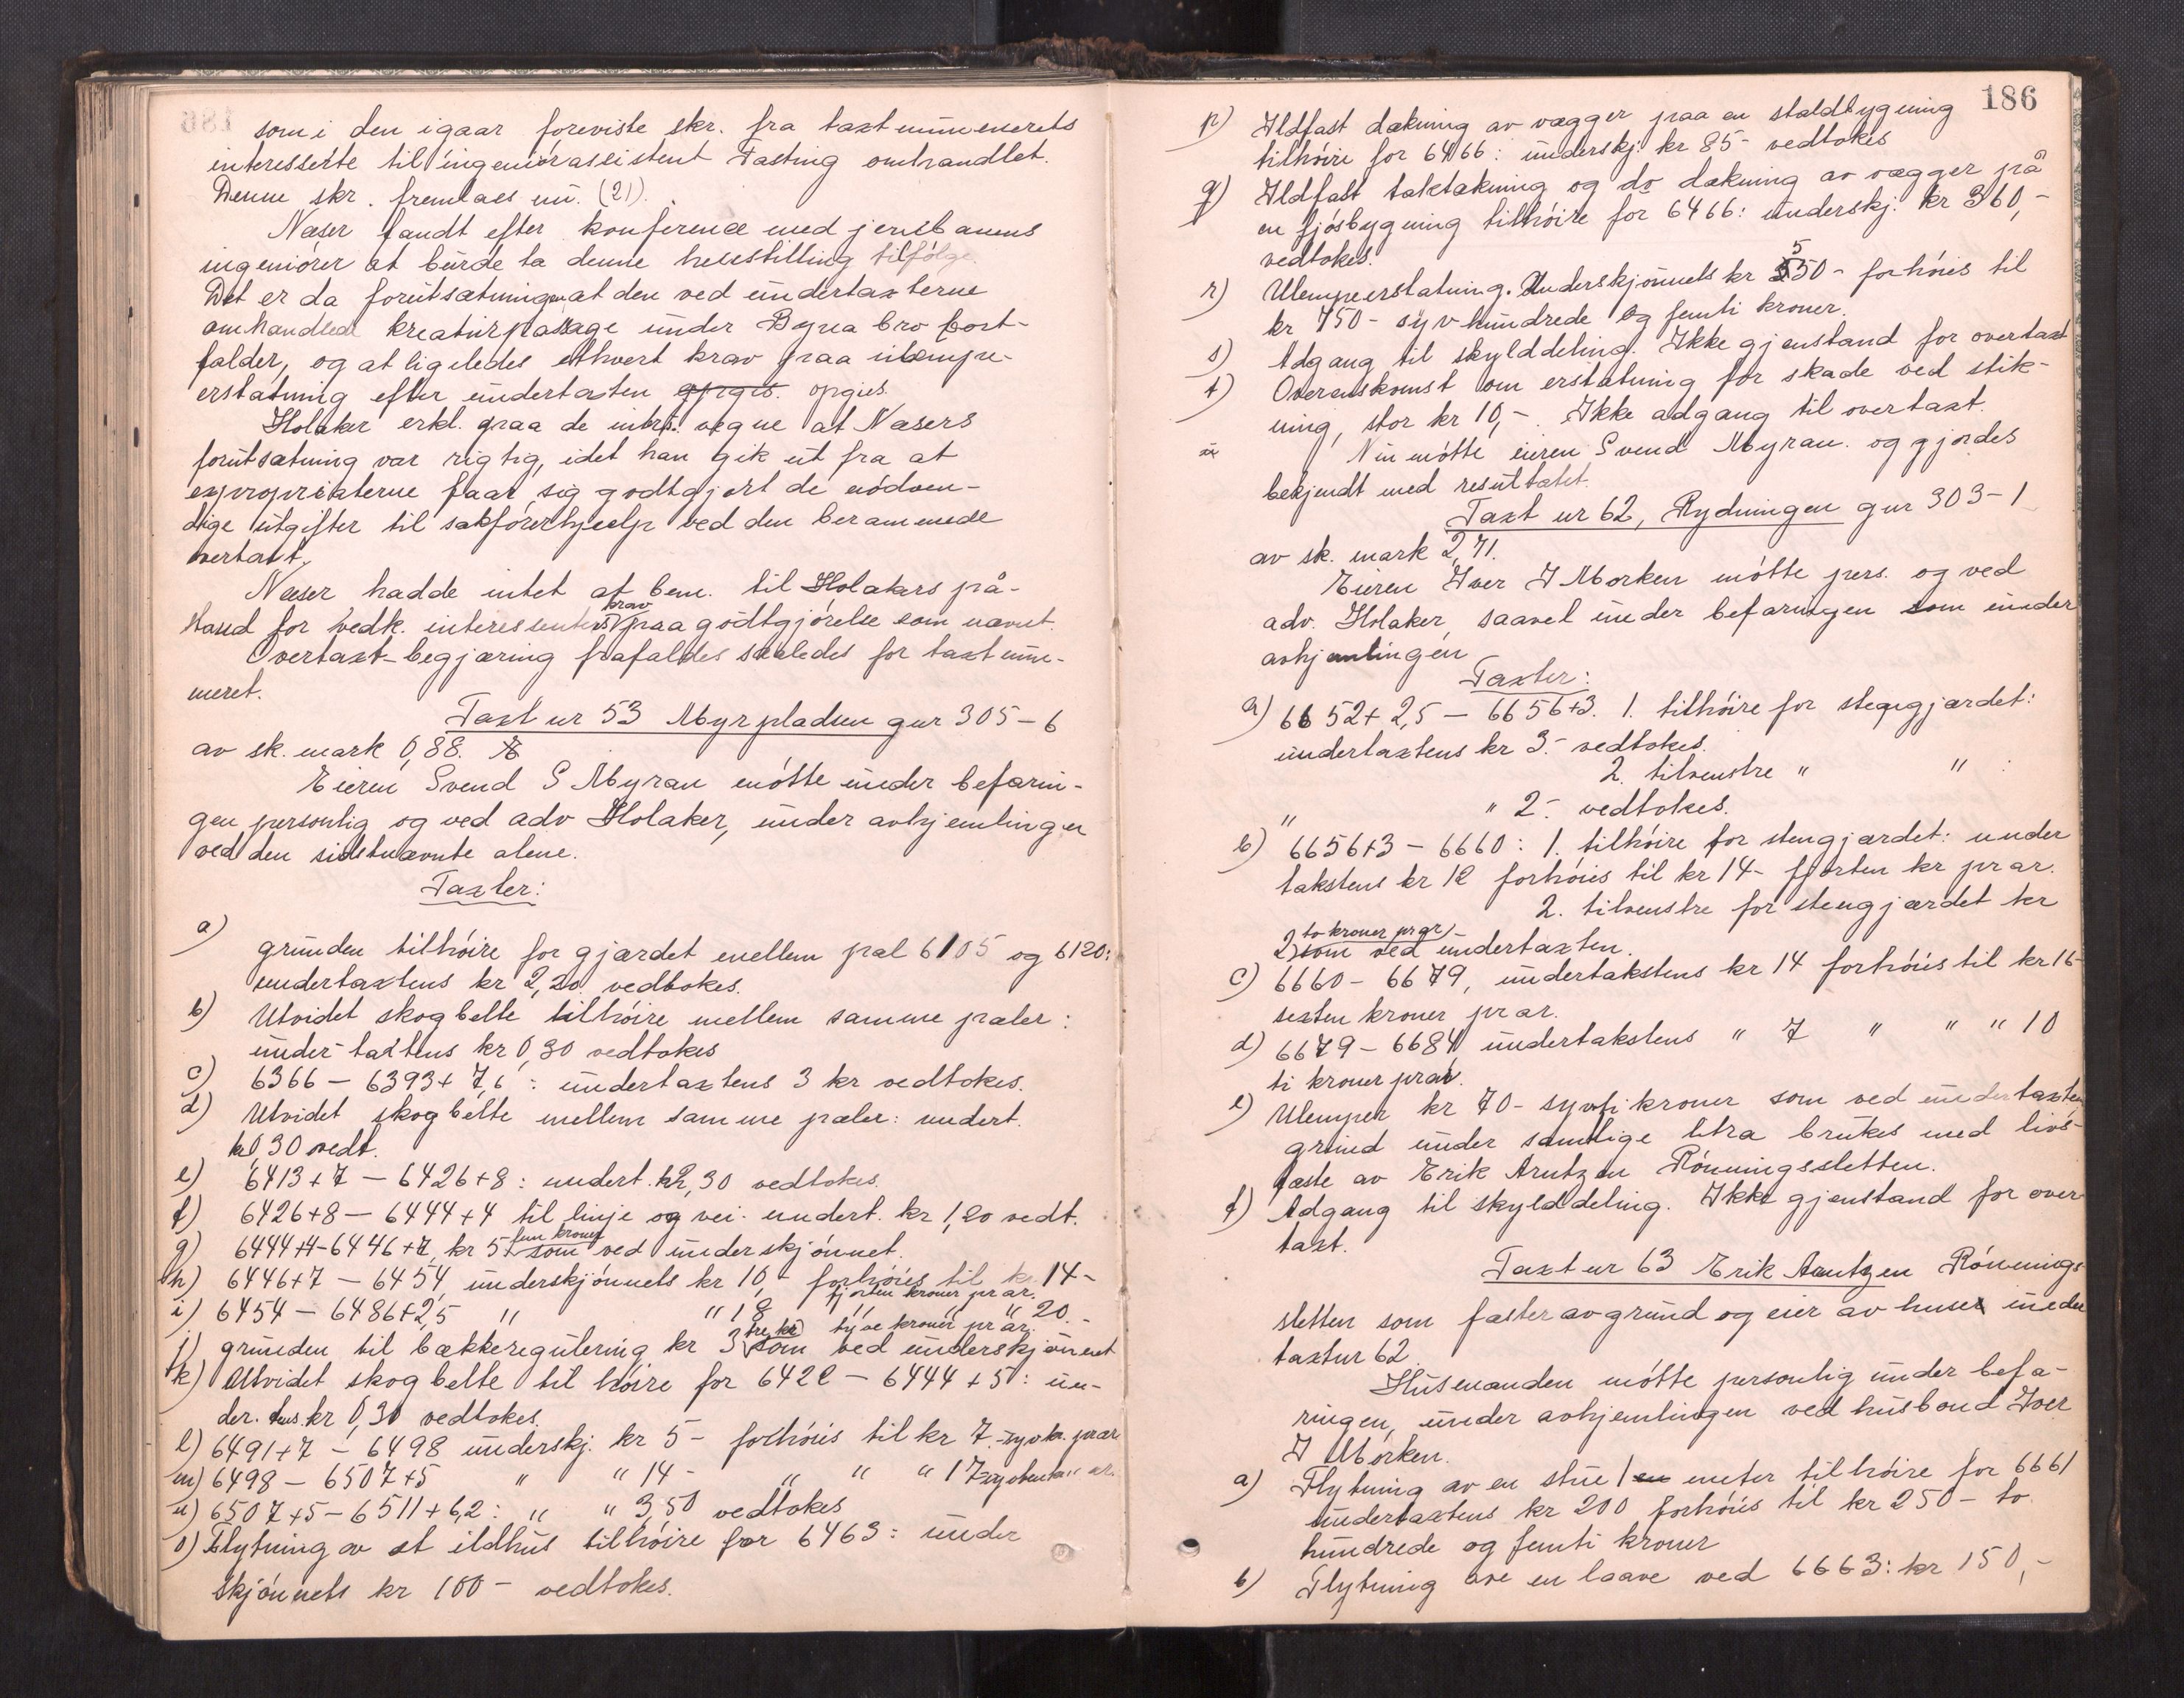 som i den igaar foreviste skr. fra taxtnummerets
interesserte til ingeniørassistent Tasting omhandlet.
Denne skr. fremlaes nu. (21).
Næser fandt efter konference med jernbanens
ingeniører at burde ta denne henstilling tilfølge.
Det er da forutsætningen at den ved undertaxterne
omhandled kreaturpassage under Bygna bro bort-
falder, og at ligeledes ethvert krav paa ulempe-
erstatning efter undertaxten opgis. opgies.
Holaker erkl. paa de intrs. vegne at Næsers
forutsætning var rigtig, idet han gik ut fra at
expropriaterne faar sig godtgjort de nødven-
dige utgifter til sakførerhjælp ved den berammede
overtaxt.
Næser hadde intet at bem. til Holakers på-
stand for vedk. interessenters krav paa godtgjørelse som nævnt.
Overtaxt-begjæring frafaldes således for taxtnum-
meret.
Taxt nr 53 Myrpladsen gnr 305-6
av sk. mark 0,88.
Eieren Svend S Myran møtte under befarin-
gen personlig og ved adv Holaker, under avhjemlingen
ved den sidstnævnte alene.
Taxter:
a) grunden tilhøire for gjærdet mellem pæl 6105 og 6120:
undertaxtens kr 2,20 vedtokes.
b) Utvidet skogbelte tilhøire mellem samme pæler:
under-taxtens kr 0,30 vedtokes
c) 6366 - 6393+7,6: undertaxtens 3 kr vedtokes.
d) Utvidet skogbelte mellem samme pæler: undert.
kr 0,30 vedt.
e) 6413+7 - 6426+8: undert. kr 2,30 vedtokes.
f) 6426+8 - 6444+4 til linje og vei. undert. kr 1,20 vedt.
g) 6444+4-6446+7, kr 5 fem kroner som ved underskjønnet.
h) 6446+7 - 6454, underskjønnets kr 10,- forhøies til kr. 14-
fjorten kroner pr ar.
i) 6454 - 6486+2,5 " " 18 " " " 20.-
tyve kroner pr ar.
j) grunden til bækkeregulering kr 3 tre kr som ved underskjønnet
k) Utvidet skogbelte til høire for 6422 - 6444+5: un-
der. tens kr 0,30 vedtokes.
l) 6491+7 - 6498 underskj. kr 5- forhøies til kr 7.- syv kr. pr ar
m) 6498 - 6507+5 " " 14- " " " 17 sytten kr " ar.
n) 6507+5-6511+6,2: " " 3,50 vedtokes
o) Flytning av et ildhus tilhøire for 6463: under
skjønnets kr 100- vedtokes.
186
p) Ildfast dækning av vægger paa en staldbygning
tilhøire for 6466: underskj. kr 85- vedtokes
q) Ildfast taktækning og do dækning av vægger på
en fjøsbygning tilhøire for 6466: underskj. kr 360,-
vedtokes.
r) Ulempeerstatning. Underskjønnets kr 550- forhøies til
kr 750- syvhundrede og femti kroner.
s) Adgang til skylddeling. Ikke gjenstand for overtaxt
t) Overenskomst om erstatning for skade ved stik-
ning, stor kr 10,-. Ikke adgang til overtaxt.
Nu møtte eieren Svend Myran. og gjordes
bekjendt med resultatet.
Taxt nr 62, Rydningen gnr 303-1
av sk. mark 2,71.
Eieren Iver I Morken møtte pers. og ved
adv. Holaker, saavel under befaringen som under
avhjemlingen
Taxter:
a) 6652+2,5 - 6656+3. 1. tilhøire for stengjærdet:
undertaxtens kr 3.- vedtokes.
2. tilvenstre " " :
" " 2.- vedtokes.
b) 6656+3 - 6660: 1. tilhøire for stengjærdet: under
takstens kr 12 forhøies til kr 14- fjorten kr pr ar.
2. tilvenstre for stengjærdet kr
2 to kroner pr ar som ved undertaxten.
c) 6660 - 6679, undertakstens kr 14 forhøies til kr 16-
sexten kroner pr ar.
d) 6679 - 6684, undertakstens " 7 " " " 10
ti kroner pr ar.
e) Ulemper kr 70- sytti kroner som ved undertaxten
grund under samtlige litra brukes med livs-
fæste av Erik Arntzen Rønningssletten.
f) Adgang til skylddeling. Ikke gjenstand for over-
taxt.
Taxt nr 63 Erik Arntzen Rønnings-
sletten som fæster av grund og eier av huser under
taxtnr 62
Husmanden møtte personlig under befa-
ringen, under avhjemlingen ved husbond Iver
I Morken.
a) Flytning av en stue 1 en meter tilhøire for 6661
undertaxtens kr 200 forhøies til kr 250- to
hundrede og femti kroner
b) Flytning ave en laave ved 6663: kr 150,-